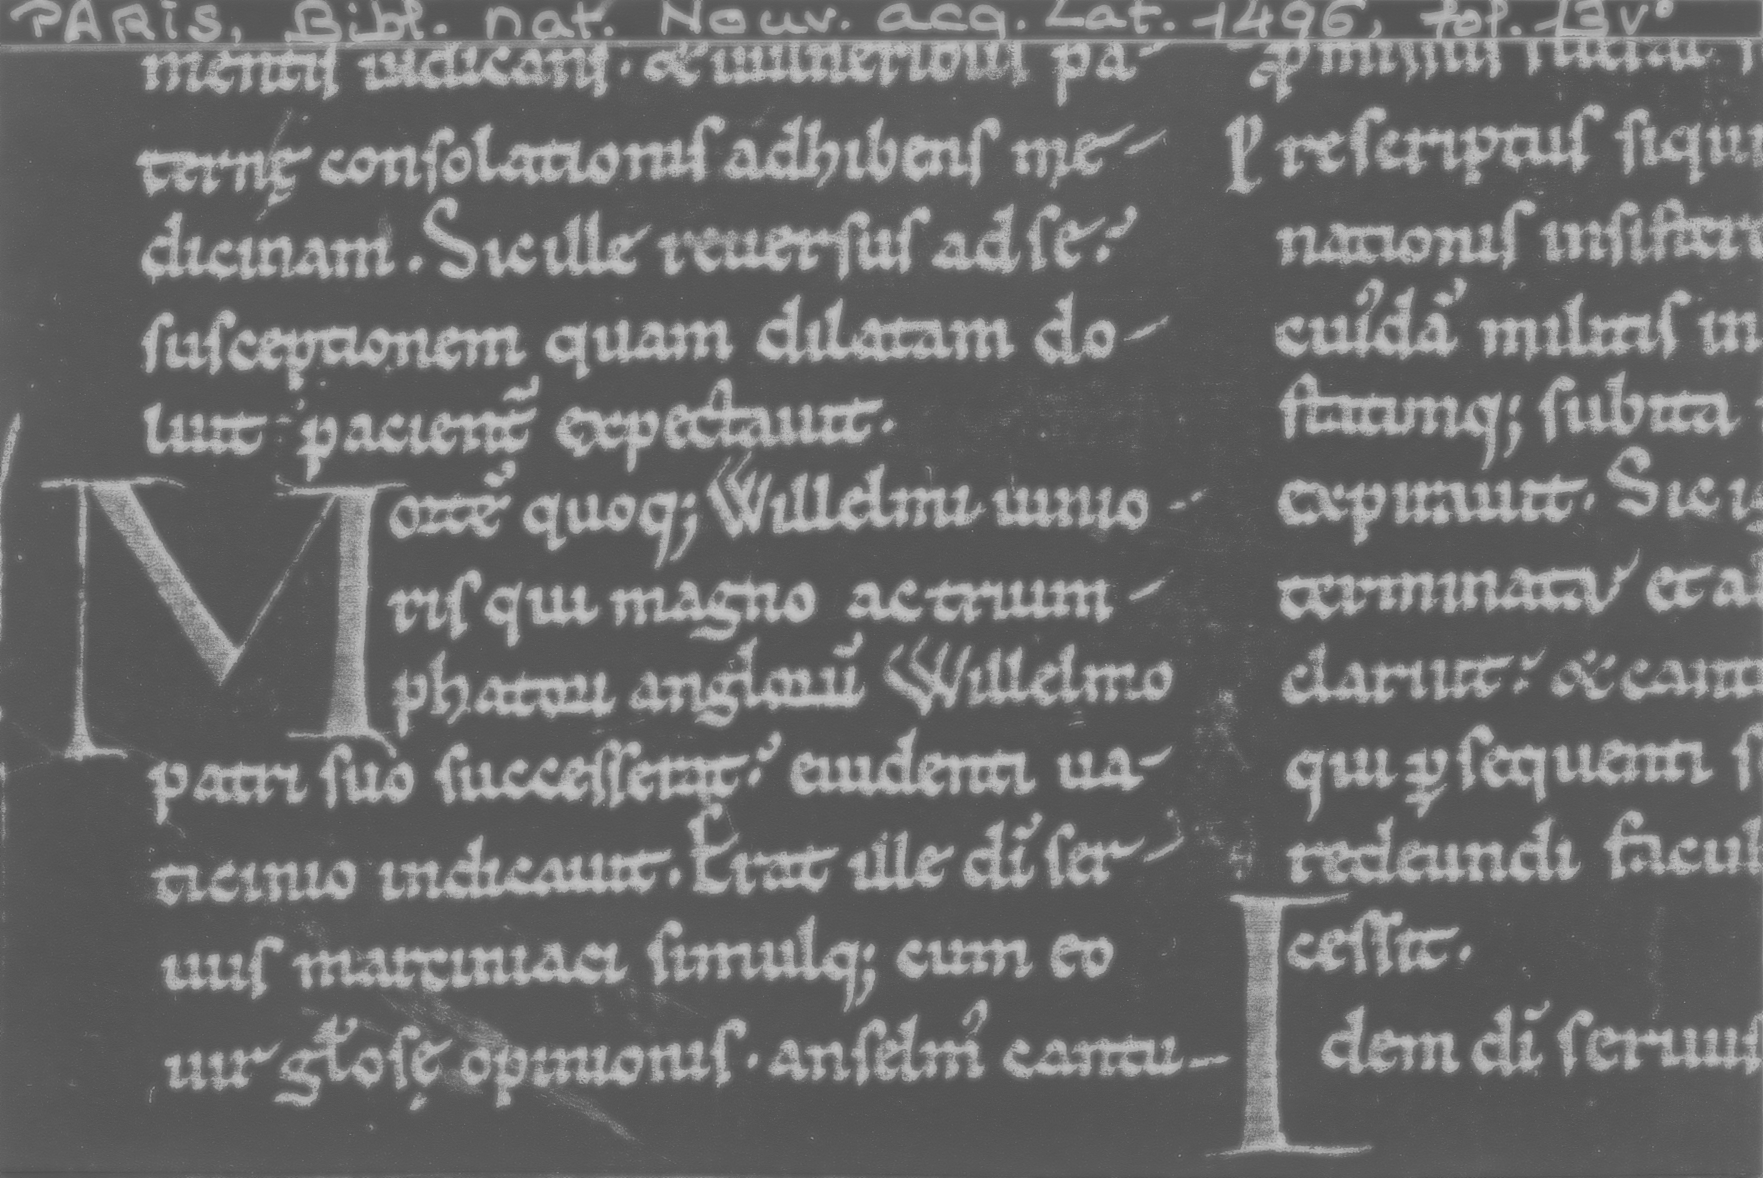 PARIS, Bibl. nat. Nouv. acq. Lat. 1496, fol. 13v°
mentis iudicans. & muneribus pa-
ternę consolationis adhibens me-
dicinam. Sic ille reuersus ad se?
susceptionem quam dilatam do-
luit pacient̄ expectauit.
Mortē quoq; Willelmi iunio-
ris qui magno ac trium-
phatori anglorū Willelmo
patri suo successerat? euidenti ua-
ticinio indicauit. Erat ille dī ser-
uus martiniaci simulq; cum eo
uir gl̄osę opinionis. anselm᾽ cantu-
p̄missus
Prescriptus siqui
nationis insiste
cui᾽dā militis in
statimq; subita
expirauit. Sic
terminat᾽ et a
claruit? & cant
qui ꝑsequenti s
redeundi facul
cessit.
Idem dī seruus